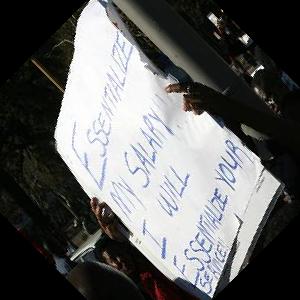 ESSENTIALIZE
MY SALARY
I WILL
ESSENTIALIZE YOUR
SERVICE!